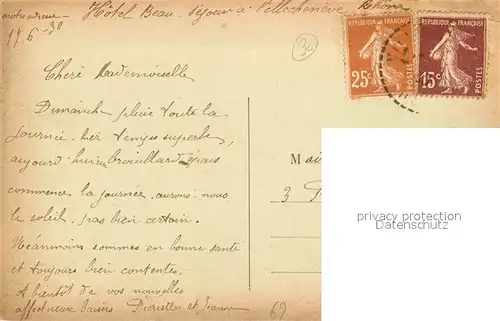 notre adresse - Hôtel Beau-séjour à Vellecheneve Rhône
17-6-30
30
REPUBLIQUE FRANÇAISE
25c
POSTES
REPUBLIQUE FRANÇAISE
15c
POSTES
Cheré Mademoiselle
Dimanche pluie toute la
journée. hier temps superbe,
aujourd'hui brouillard épais
commence la journée. aurons-nous
le soleil, pas bien certain.
Néanmoins sommes en bonne santé
et toujours bien contentes.
A bientôt de vos nouvelles
affectueux baisers Pierrette et Jeanne
3
69
privacy protection
Datenschutz